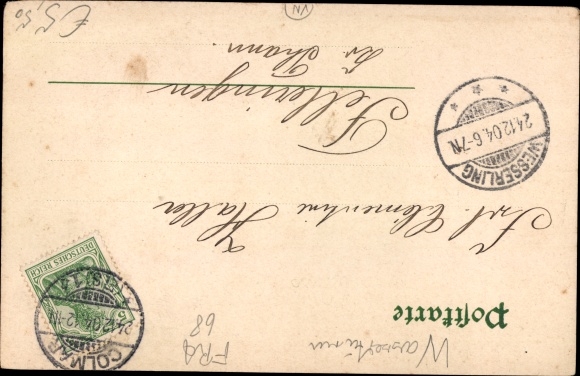 Postkarte
Frl. Clémentine Haller
Felleringen
Kr. Thann
WESSERLING
24.12.04.6-7N.
DEUTSCHES REICH
COLMAR
24.12.04.12-1N
FRA
68
€ 5,50
VN